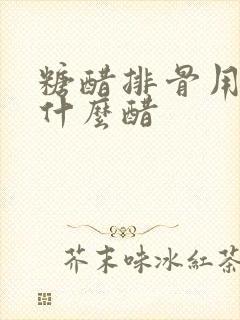 糖醋排骨用
什麼醋
芥末味冰紅茶